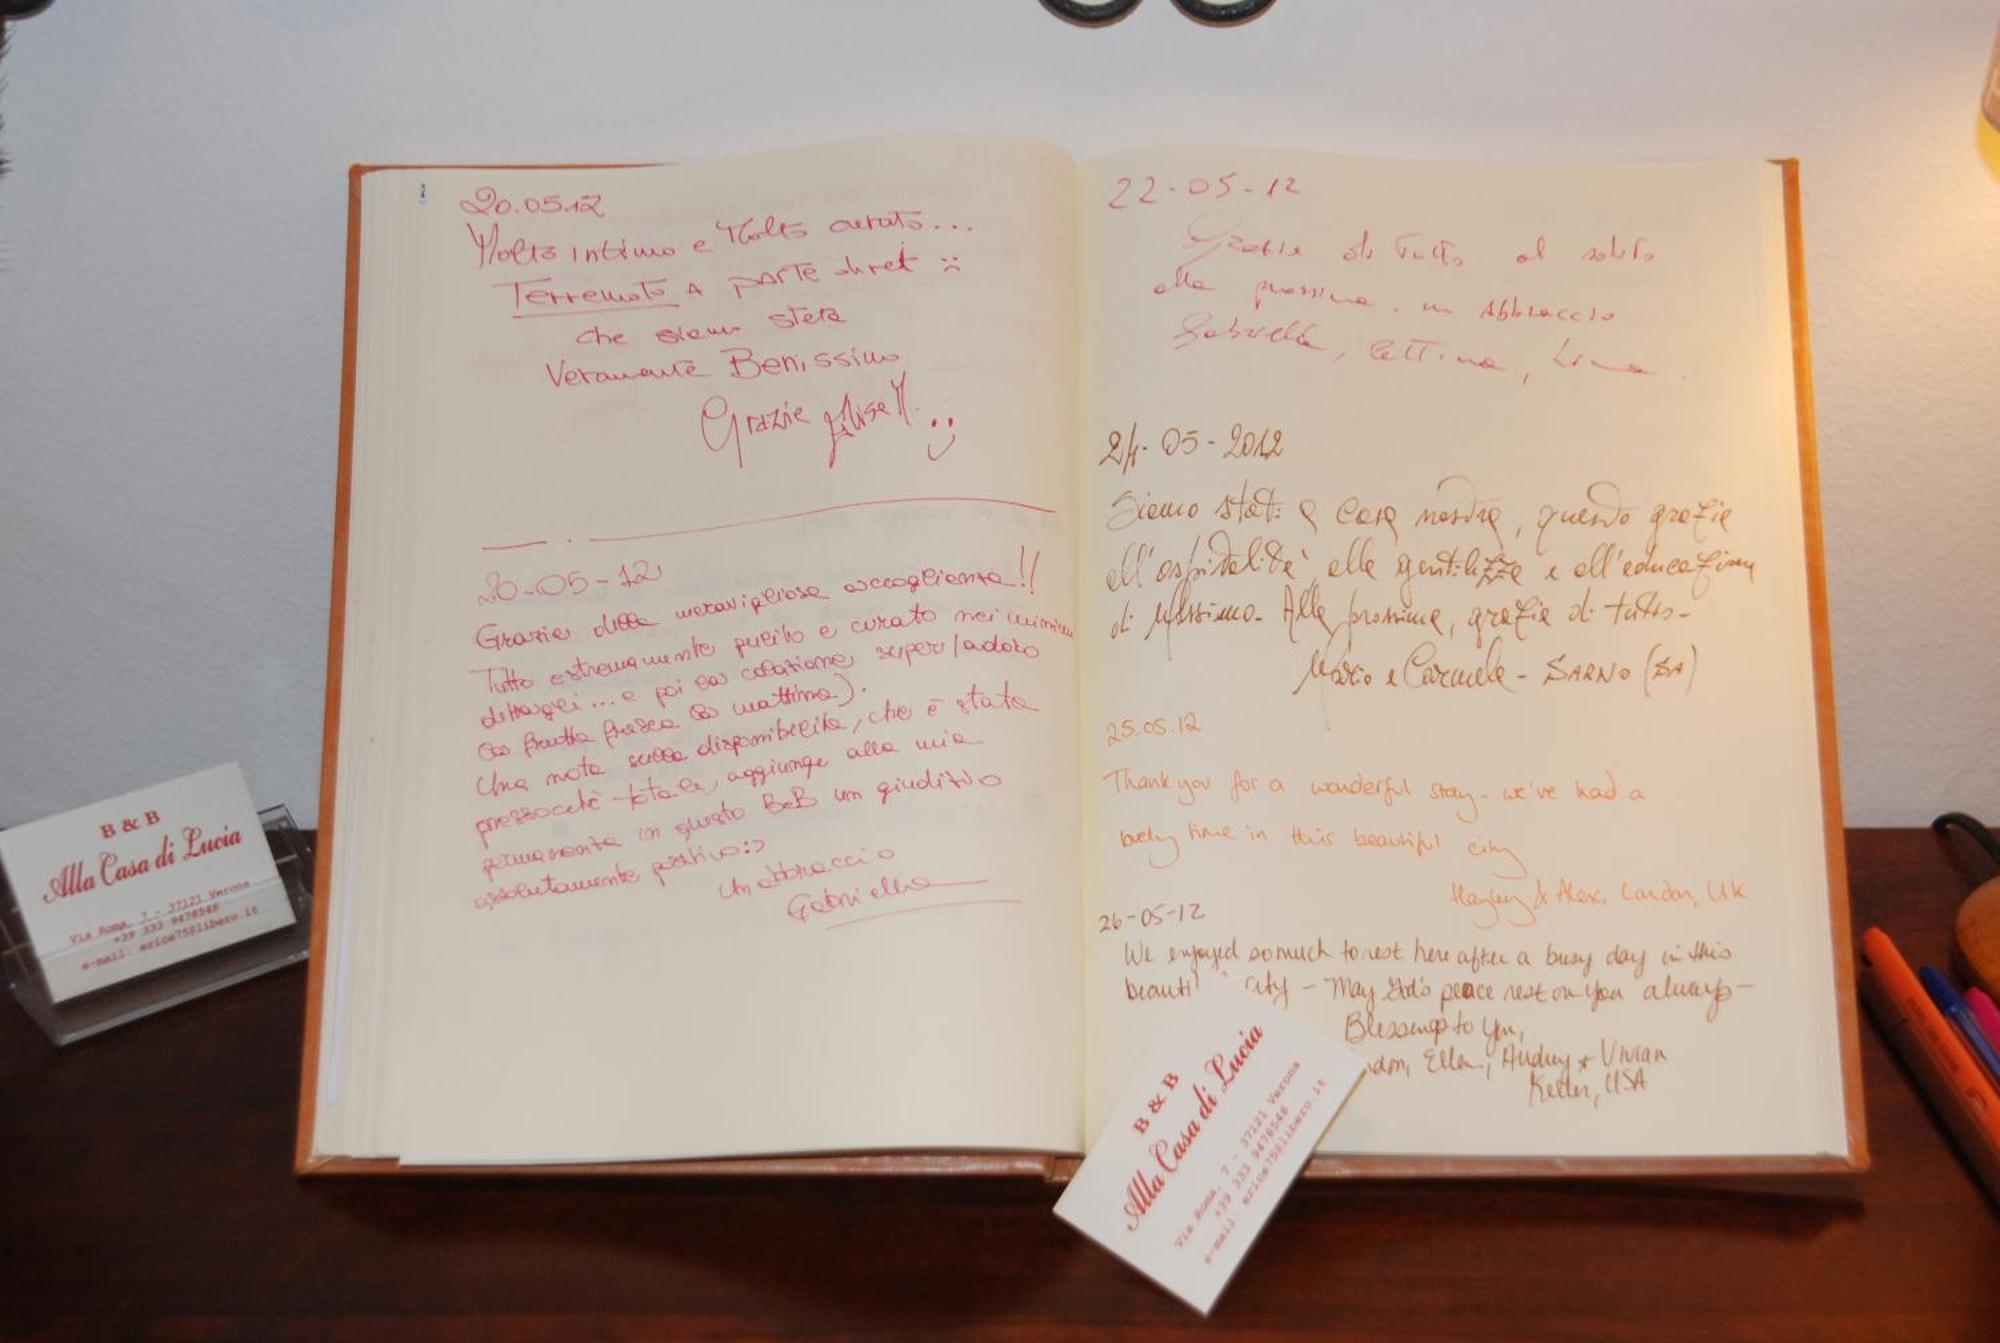 20.05.12
Molto intimo e Molto curato...
Terremoto A PARTE :(
che siamo state
Veramente Benissimo
Grazie
20-05-12
Grazie della meravigliosa accoglienza!!
Tutto estremamente pulito e curato nei minimi
dettagli... e poi la colazione super (adoro
la frutta fresca la mattina).
Una nota sulla disponibilità, che è stata
pressochè totale, aggiunge alla mia
permanenza in questo B&B un giudizio
assolutamente positivo :)
Un abbraccio
Gabriella
22-05-12
Grazie di tutto al solito
alla prossima. un Abbraccio
Gabriella, Lettina, Lina.
24-05-2012
Siamo stati a casa nostra, questo grazie
all'ospitalità alla gentilezza e all'educazione
di Massimo. Alla prossima, grazie di tutto-
Mario e Carmela - SARNO (SA)
25.05.12
Thank you for a wonderful stay - we've had a
lovely time in this beautiful city
& Alex, London, UK
26-05-12
We enjoyed so much to rest here after a busy day in this
beauti city - May God's peace rest on you always-
Blessings to you,
don, Ellen, Audrey & Vivian
Keller, USA
B & B
Alla Casa di Lucia
Via Roma, 7 - 37121 Verona
+39 333 9478548
e-mail: erice75@libero.it
B & B
Alla Casa di Lucia
Via Roma, 7 - 37121 Verona
+39 333 9478548
e-mail: erice75@libero.it